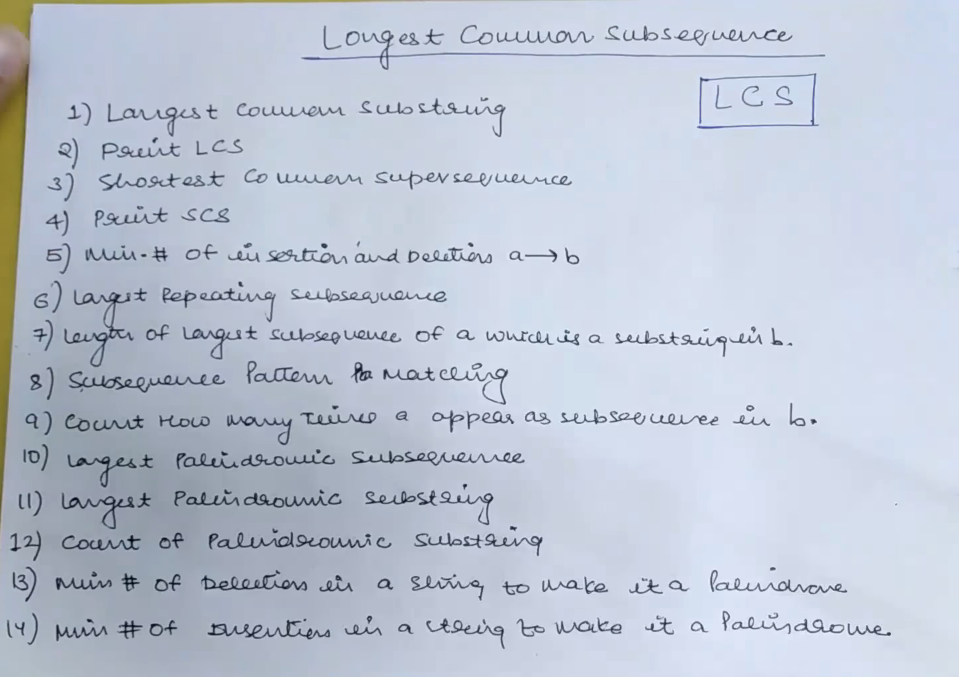 Longest Common Subsequence
LCS
1) Largest Common Substring
2) Print LCS
3) Shortest Common supersequence
4) Print SCS
5) Min-# of insertion and Deletions a→b
6) Largest Repeating subsequence
7) Length of Largest subsequence of a which is a substring in b.
8) Subsequence Pattern Matching
9) Count How many times a appear as subsequence in b.
10) Largest Palindromic Subsequence
11) Largest Palindromic substring
12) Count of Palindromic Substring
13) Min # of Deletion in a string to make it a Palindrome
14) Min # of Insertions in a string to make it a Palindrome.